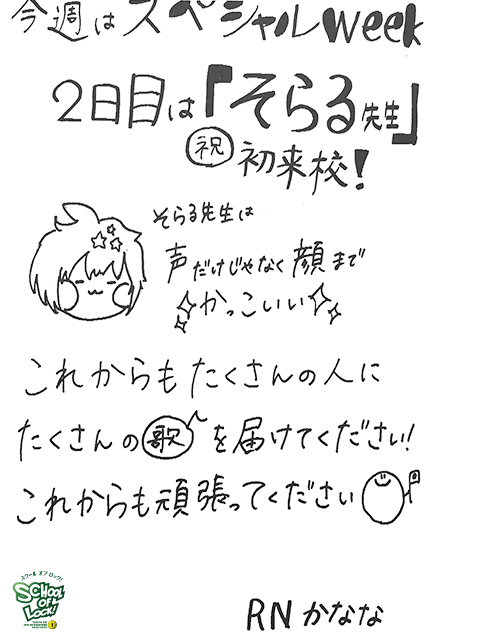 今週はスペシャルweek
2日目は『そらる先生』
祝 初来校!
そらる先生は
声だけじゃなく顔まで
かっこいい
これからもたくさんの人に
たくさんの歌を届けてください!
これからも頑張ってください
スクールオブロック!
SCHOOL
OF
LOCK!
RNかなな